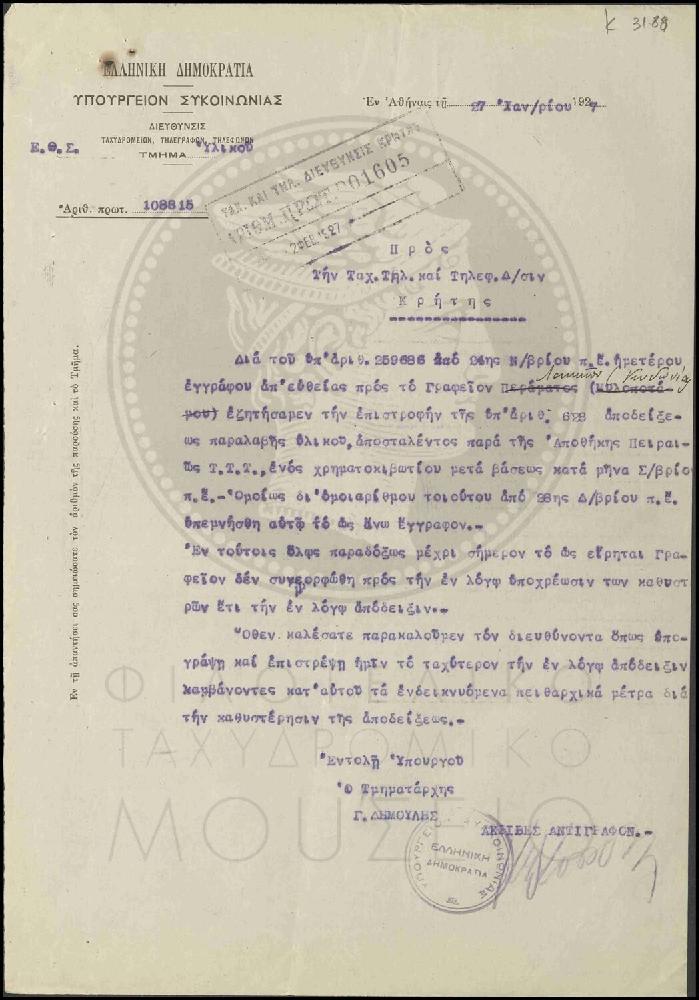 Κ 31.88
ΕΛΛΗΝΙΚΗ ΔΗΜΟΚΡΑΤΙΑ
ΥΠΟΥΡΓΕΙΟΝ ΣΥΚΟΙΝΩΝΙΑΣ
ΔΙΕΥΘΥΝΣΙΣ
ΤΑΧΥΔΡΟΜΕΙΩΝ, ΤΗΛΕΓΡΑΦΩΝ, ΤΗΛΕΦΩΝΩΝ
Ε.Θ.Σ. ΤΜΗΜΑ Ὑλικοῦ
Ἀριθ. πρωτ. 108815
Ἐν Ἀθήναις τῇ 27 Ἰαν/ρίου 1927
ΤΑΧ. ΚΑΙ ΤΗΛ. ΔΙΕΥΘΥΝΣΙΣ ΚΡΗΤΗΣ
ΑΡΙΘΜ. ΠΡΩΤ. 01605
2 ΦΕΒ 1927
Πρὸς
Τήν Ταχ.Τηλ.καί Τηλεφ.Δ/σιν
Κρήτης
Διά τοῦ ὑπ'ἀριθ.259686 ἀπό 24ης Ν/βρίου π.ἔ.ἡμετέρου
ἐγγράφου ἀπ'εὐθείας πρός τό Γραφεῖον Περάματος (Μυλοποτά-
μου) ἐζητήσαμεν τήν ἐπιστροφήν τῆς ὑπ'ἀριθ. 628 ἀποδείξε-
ως παραλαβῆς ὑλικοῦ,ἀποσταλέντος παρά τῆς Ἀποθήκης Πειραι-
ῶς Τ.Τ.Τ.,ἑνός χρηματοκιβωτίου μετά βάσεως κατά μῆνα Σ/βρίο
π.ἔ.- Ὁμοίως δι'ὁμοιαρίθμου τοιούτου ἀπό 28ης Δ/βρίου π.ἔ.
ὑπεμνήσθη αὐτῷ τό ὡς ἄνω ἔγγραφον.-
Ἐν τούτοις ὅλως παραδόξως μέχρι σήμερον τό ὡς εἴρηται Γρα-
φεῖον δέν συνεμορφώθη πρός τήν ἐν λόγῳ ὑποχρέωσιν των καθυστ
ρῶν ἔτι τήν ἐν λόγῳ ἀπόδειξιν.-
Ὅθεν καλέσατε παρακαλοῦμεν τόν διευθύνοντα ὅπως ὑπο-
γράψῃ καί ἐπιστρέψῃ ἡμῖν τό ταχύτερον τήν ἐν λόγῳ ἀπόδειξιν
λαμβάνοντες κατ'αὐτοῦ τά ἐνδεικνυόμενα πειθαρχικά μέτρα διά
τήν καθυστέρησιν τῆς ἀποδείξεως.-
Ἐντολῇ Ὑπουργοῦ
Ὁ Τμηματάρχης
Γ.ΔΗΜΟΥΛΗΣ
ΑΚΡΙΒΕΣ ΑΝΤΙΓΡΑΦΟΝ.-
ΥΠΟΥΡΓΕΙΟΝ ΣΥΓΚΟΙΝΩΝΙΑΣ
ΕΛΛΗΝΙΚΗ
ΔΗΜΟΚΡΑΤΙΑ
Ἐν τῇ ἀπαντήσει σας σημειώσατε τὸν ἀριθμὸν τῆς παρούσης καὶ τὸ Τμῆμα.
ΦΙΛΟΤΕΛΙΚΟ
ΤΑΧΥΔΡΟΜΙΚΟ
ΜΟΥΣΕΙΟ